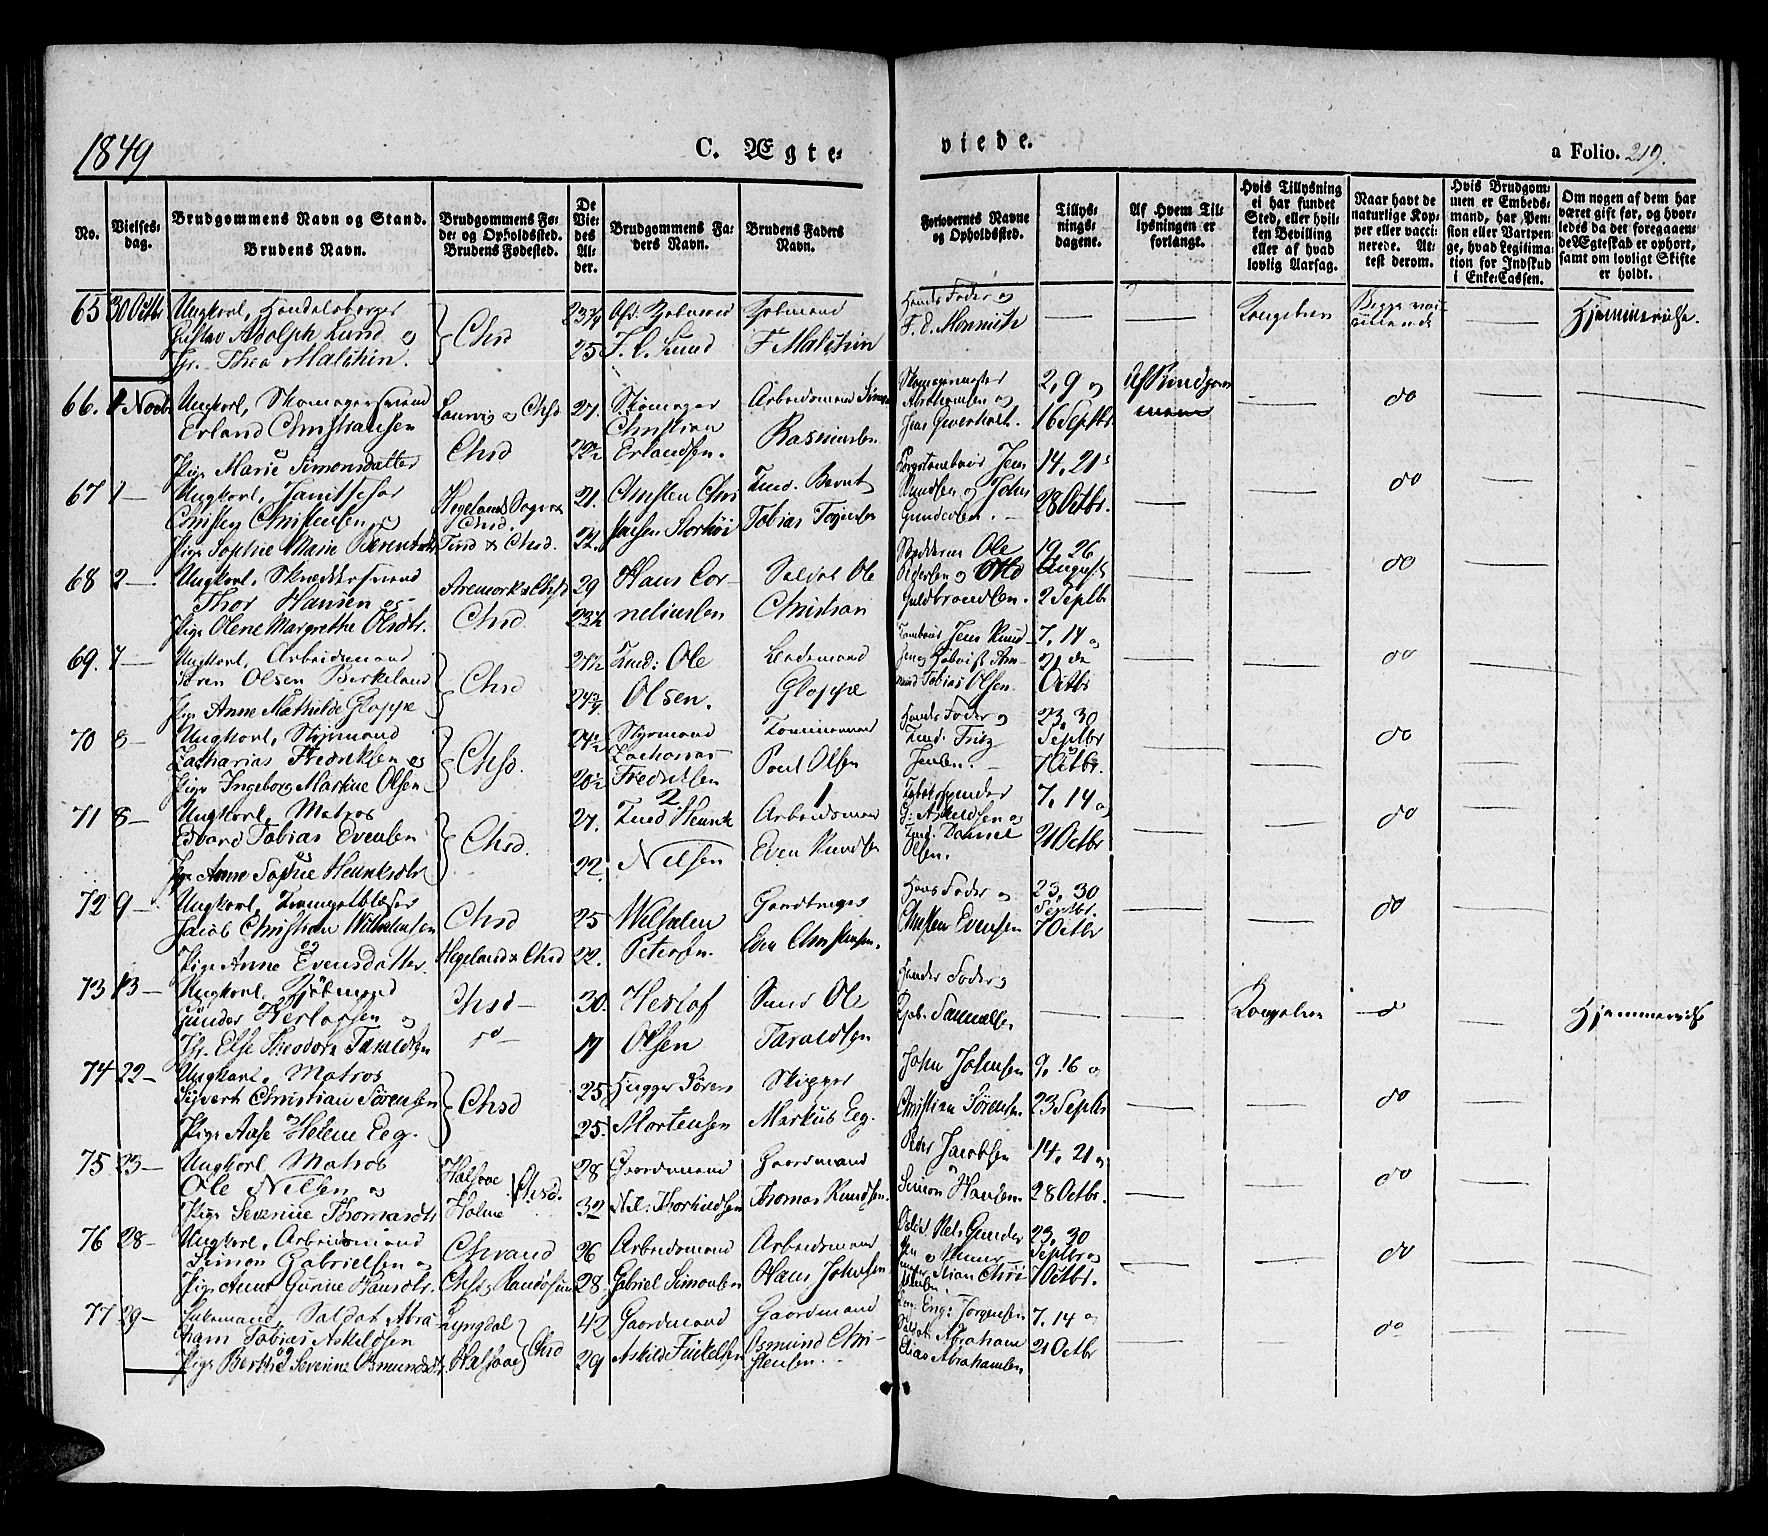 1849
C. Ægte-
viede.
a Folio. 219.
No.
Vielses-
dag.
Brudgommens Navn og Stand.
Brudens Navn.
Brudgommens Fø-
de- og Opholdssted.
Brudens Fødested.
De
Vie-
des
Al-
der.
Brudgommens Fa-
ders Navn.
Brudens Faders
Navn.
Forlovernes Navne
og Opholdssted.
Tillys-
nings-
dagene.
Af Hvem Til-
lysningen er
forlangt.
Hvis Tillysning
ei har fundet
Sted, eller hvil-
ken Bevilling
eller af hvad
lovlig Aarsag.
Naar havt de
naturlige Kop-
per eller vacci-
nerede. At-
test derom.
Hvis Brudgom-
men er Embeds-
mand, har Pen-
sion eller Vartpen-
ge, hvad Legitima-
tion for Indskud
i Enke-Cassen.
Om nogen af dem har
været gift før, og hvor-
ledes da det foregaaen-
de Ægteskab er ophørt,
samt om lovligt Skifte
er holdt.
65 30 Octbr Ungkarl, Handelsborger
Gustav Adolph Lund og
Jfr. Thea Malthin.
Chsd
23 3/4
25
Lund
F Malthin
Kongebrev
Hjemmevielse.
66. 1 Novbr Ungkarl, Skomagersvend
Erland Christiansen
Pige Marie Simonsdatter
Laurvig og Chsd
Chsd
27.
22 1/2
Skomager
Christian
Erlandsen.
Arbeidsmand Simon
Rasmussen
Skomagermester
Abrahamsen og
2, 9 og
16 Septbr.
Af Brudgom-
men
do
67 1 — Ungkarl, Janitschar
Christen Christensen og
Pige Sophie Marie Berentsdtr
Hegelands Sogn &
Chsd.
21.
22.
Christen Chri
Tobias Tojusen
Jens
Knudsen og John
Gundersen. —
14. 21 &
28 Octbr.
do
68 2 — Ungkarl, Skræddersvend
Thor Hansen og
Pige Olene Margrethe Olsdtr.
Aremark & Chsd
Chsd.
29
23 1/2
Hans Cor-
neliussen
Soldat Ole
Christian
Ole
Pedersen og Otto
Guldbrandsen.
19. 26
August
2 Septbr
do
69. 7 — Ungkarl, Arbeidsmand
Søren Olsen Birkeland
Pige Anne Mathilde Gloppe
Chsd
27 1/2
24 3/4
Ole
Olsen.
Gloppe
Tambour Jens Knud-
Tobias Olsen.
7. 14 og
21 de
Octbr
do
70 8 — Ungkarl, Styrmand
Zacharias Fredriksen og
Pige Ingeborg Martine Olsen
Chsd.
24 1/2
20 1/2
Styrmand
Zacharias
Fredriksen
Tømmermand
Poul Olsen
Hendes Fader og
Fritz
Jensen. —
23. 30
Septbr
7 Octbr.
do
71 8 — Ungkarl, Matros
Edvard Tobias Evensen
og
Pige Anne Sophie Henriksdtr
Chsd.
27.
22.
2
Henrik
Nilsen
1
Arbeidsmand
Even Knudsen
Daniel
Olsen.
7. 14 og
21 Octbr
do
72 9 — Ungkarl, Trompetblæser
Jacob Christian Wilhelmsen
og
Pige Anne Evensdatter.
Chsd
Hegeland & Chsd
25
22.
Wilhelm
Petersen.
Even Christensen.
Hans Fader og
Christen Evensen
23. 30
Septbr.
7 Octbr
do
73 13 — Ungkarl, Kjøbmand
Gunder Herlofsen og
Jfr. Else Theodora Taraldsen
Chsd —
do —
30.
19
Herlof
Olsen
Ole
Taraldsen
Hendes Fader og
Kjøb. Samuelsen
Kongebrev
do
Hjemmevielse
74 22 — Ungkarl, Matros
Sivert Christian Sørensen
og
Pige Aase Helene Eeg.
Chsd
25
25.
Hugger Søren
Mortensen
Skipper
Markus Eeg.
John Johnsen
Christian Sørensen
9. 16 og
23 Septbr
do
75. 23 — Ungkarl, Matros
Ole Nilsen og
Pige Severine Thomasdtr
Halsaae
Holme
Chsd.
28
32
Gaardmand
Nil: Thorkildsen
Gaardmand
Thomas Knudsen.
Peder Jacobsen
og
Simon Hansen.
14. 21 og
28 Octbr.
do
76 28 — Ungkarl, Arbeidsmand
Simon Gabrielsen og
Pige Anne Gurine Hansdtr.
Chrsand
Chsd & Randøsund
26
28.
Arbeidsmand
Gabriel Simonsen
Arbeidsmand
Hans Johnsen
23. 30
Septbr og
7 Octbr.
do
77 29 — Enkemand, Soldat Abra-
ham Tobias Askildsen
og
Pige Berthe Severine Osmundsdtr
Lyngdal
Halsaae
Chsd
42
29
Gaardmand
Askild Finkelsen
Gaardmand
Osmund Chri-
stensen. —
Eng: Jørgensen
Abraham
Elias Abrahamsen
7. 14 og
21 Octbr
do